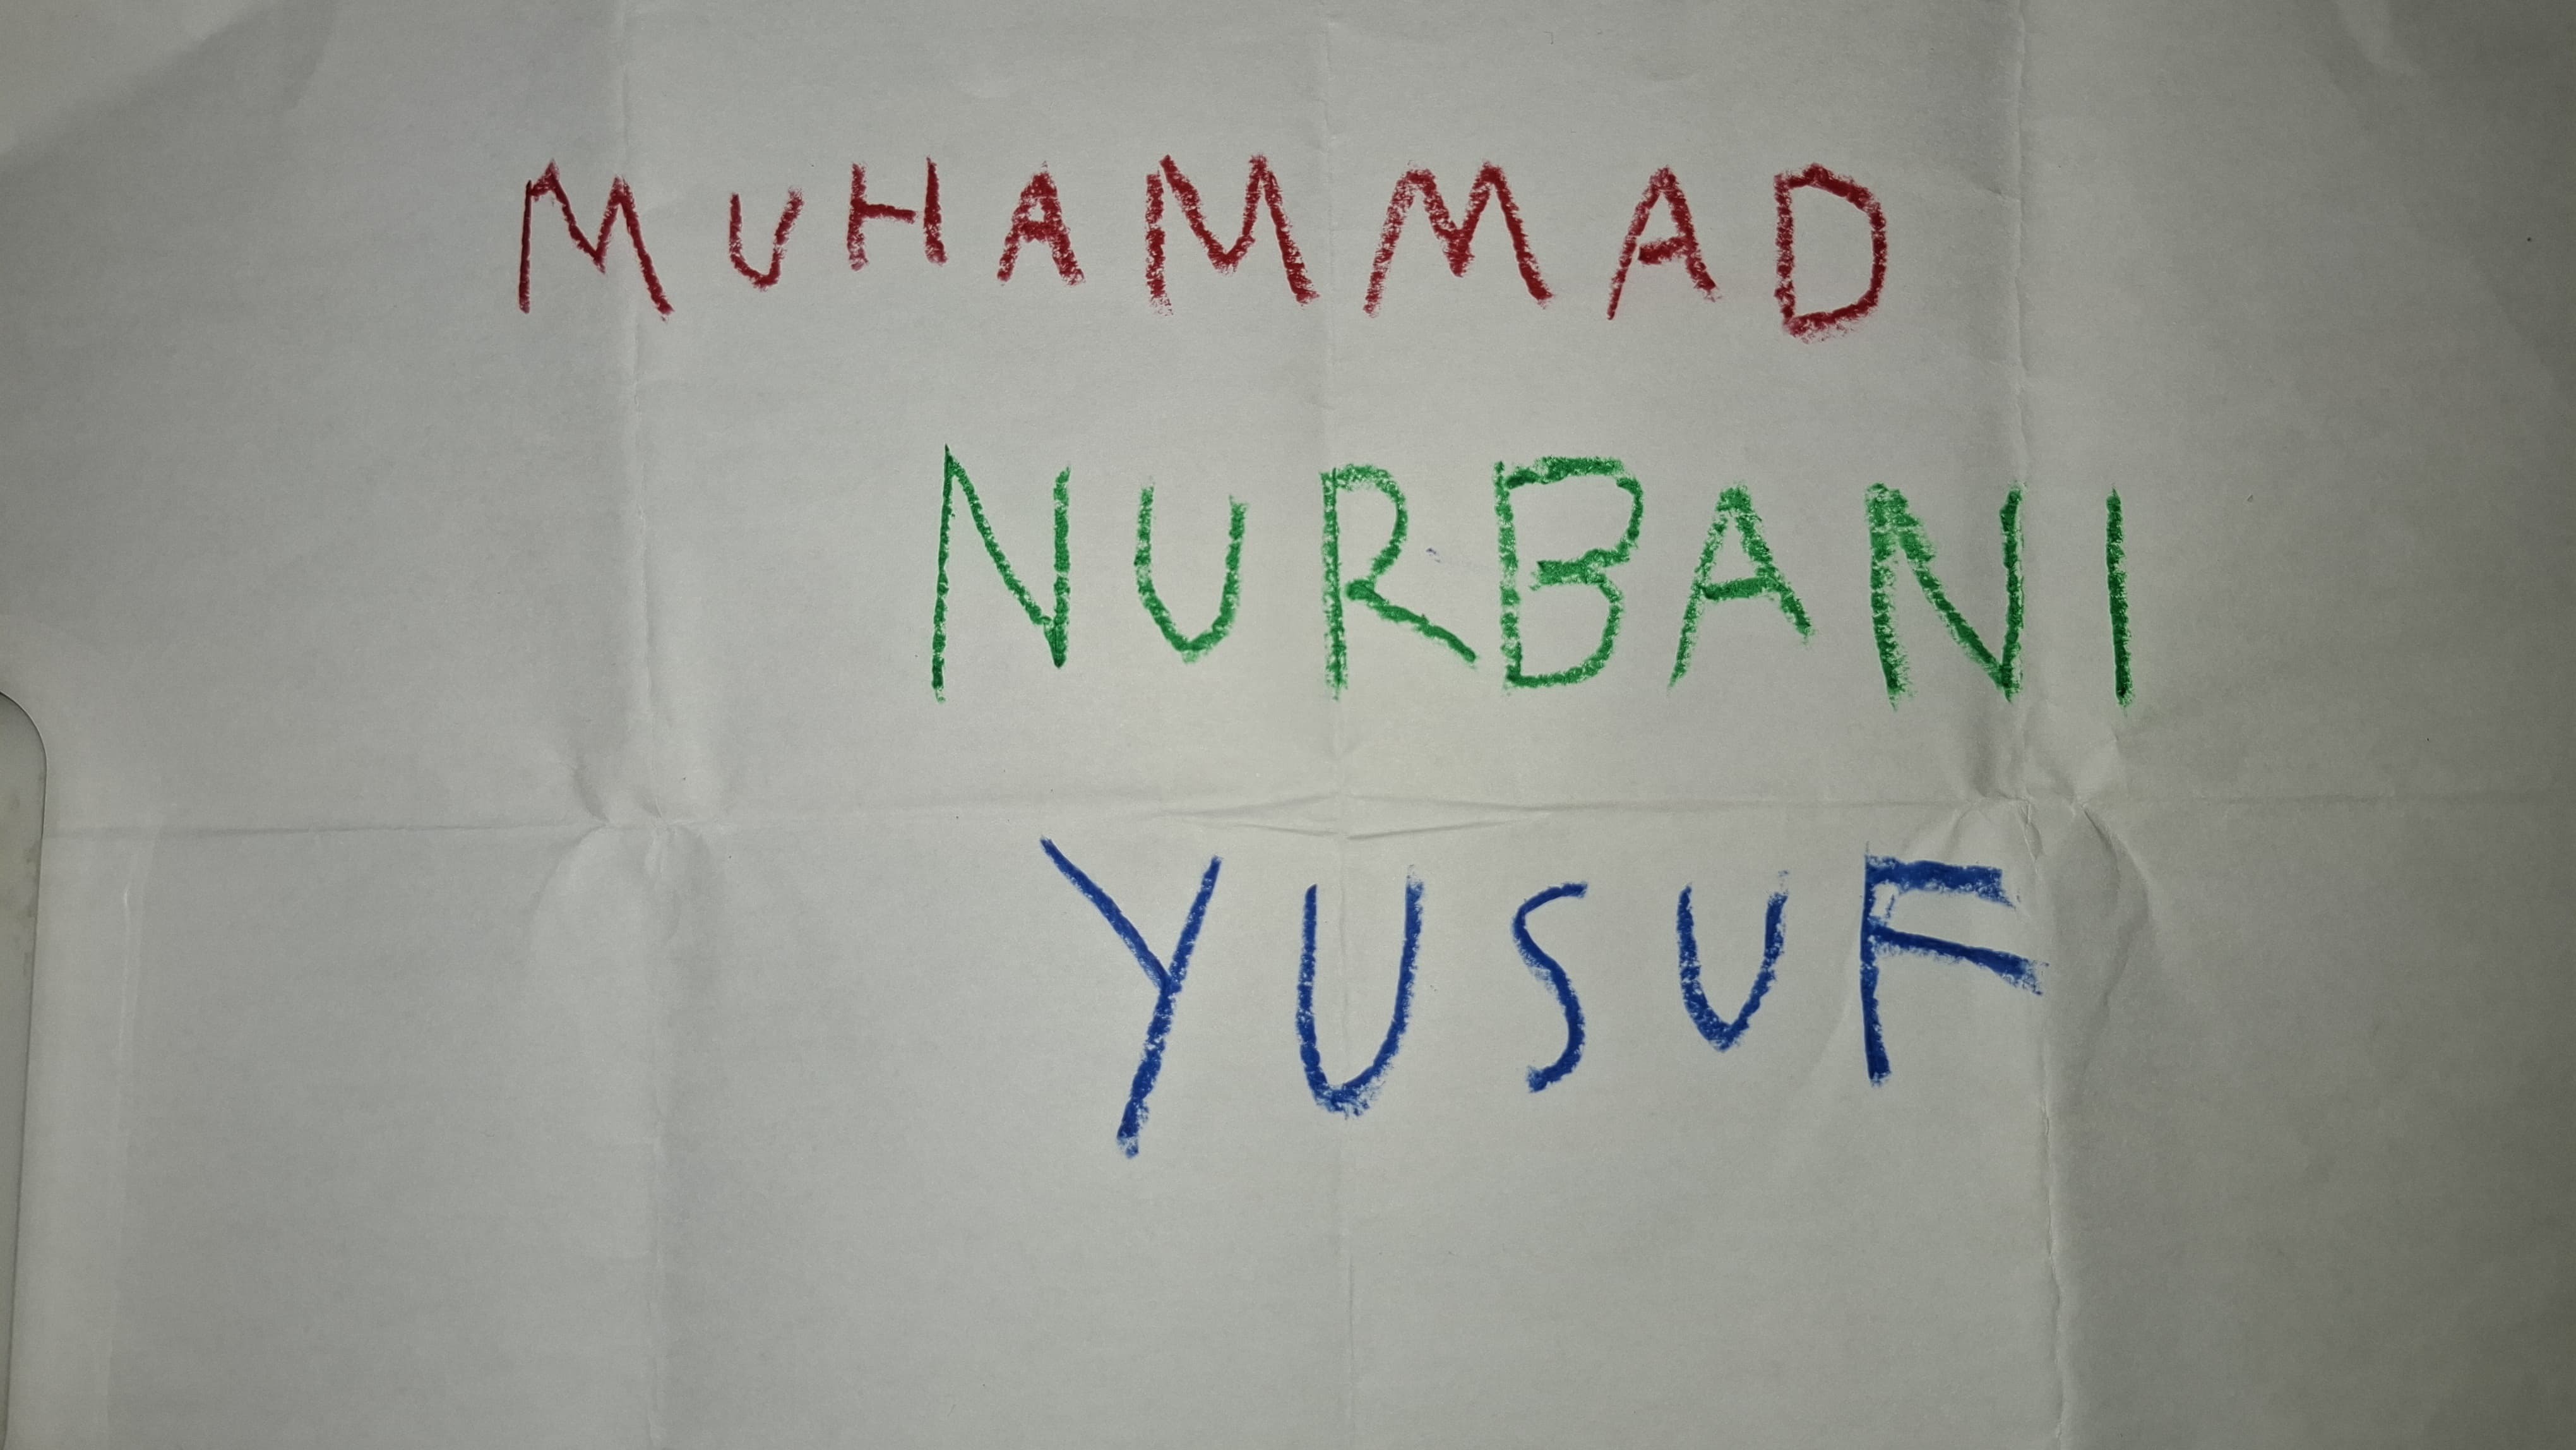 MUHAMMAD
NURBANI
YUSUF